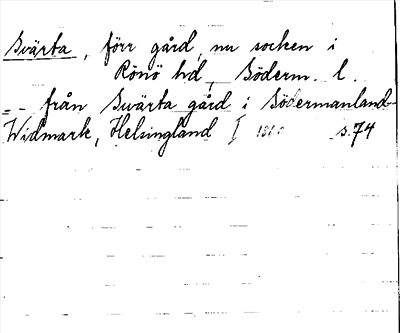 Svärta, förr gård, nu socken i
Rönö hd, Söderm. l.
_ _ från Svärta gård i Södermanland
Widmark, Helsingland I s. 74